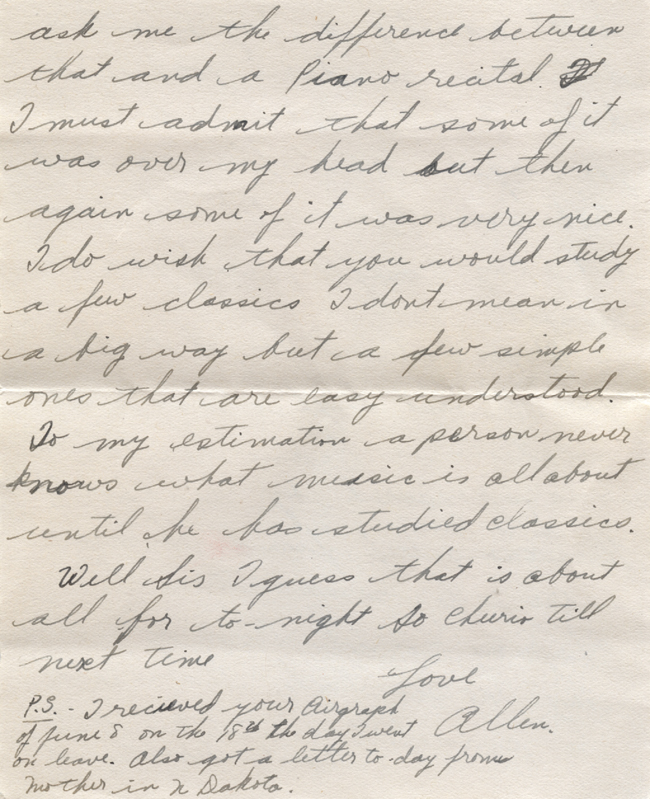 ask me the difference between
that and a Piano recital.
I must admit that some of it
was over my head but then
again some of it was very nice.
I do wish that you would study
a few classics I dont mean in
a big way but a few simple
ones that are easy understood.
To my estimation a person never
knows what music is all about
until he has studied classics.
Well Sis I guess that is about
all for to-night So Cheerio till
next time
Love
P.S. - I recieved your Airgraph
of June 8 on the 18th the day I went
Allen.
on leave. Also got a letter to-day from
Mother in N Dakota.